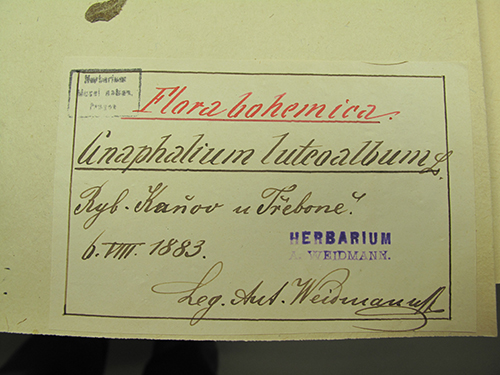 Herbarium
Musei nation.
Pragae
Flora bohemica.
Gnaphalium luteoalbum L.
Ryb. Kaňov u Třeboně.
6. VIII. 1883.
HERBARIUM
A. WEIDMANN.
Leg. Ant. Weidmann